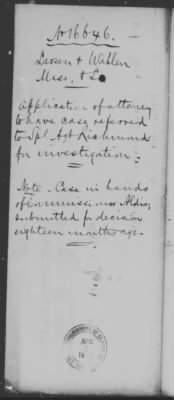 No 16646.
Larsen & Wahlen
Miss. & La
Application of attorney
to have case referred
to Spl. Agt Richmond
for investigation.
Note - Case in hands
of Commissioner Aldis;
submitted for decision
eighteen months ago.
APR